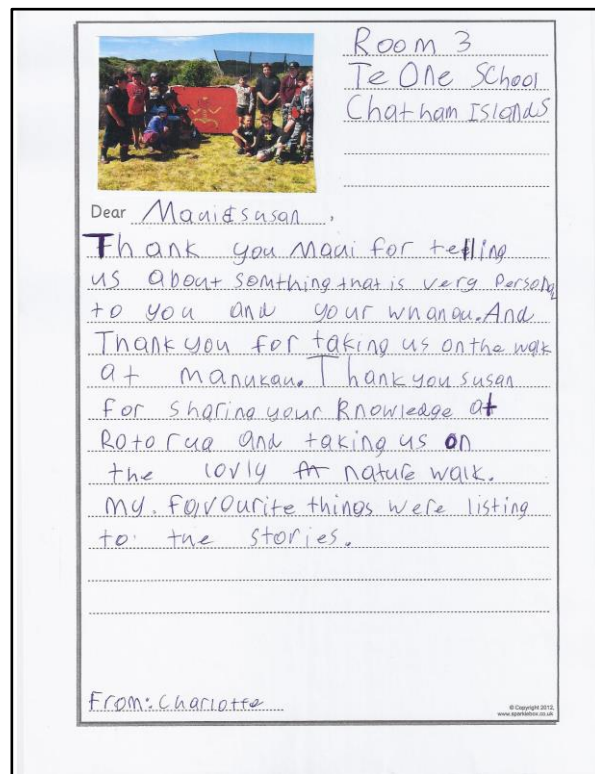 Room 3
Te One School
Chatham Islands
Dear Maui & susan,
Thank you Maui for telling
us about somthing that is very Personal
to you and your whanau. And
Thank you for taking us on the walk
at manukau. Thank you susan
for sharing your knowledge at
Rotorua and taking us on
the lovly nature walk.
my favourite things were listing
to the stories.
From: Charlotte
© Copyright 2012,
www.sparklebox.co.uk